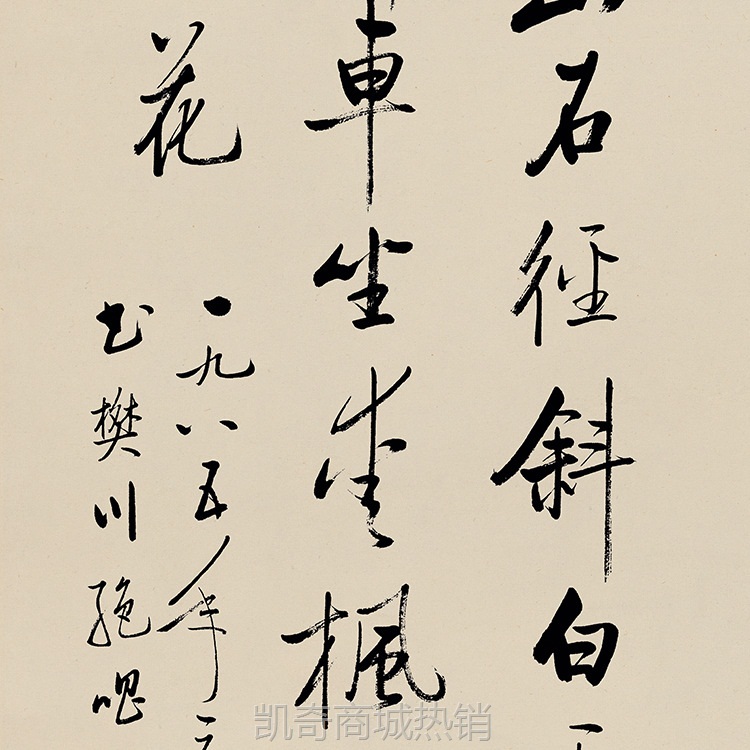 山石徑斜白
車坐愛楓
花
一九八五年
书樊川絕唱
凯奇商城热销